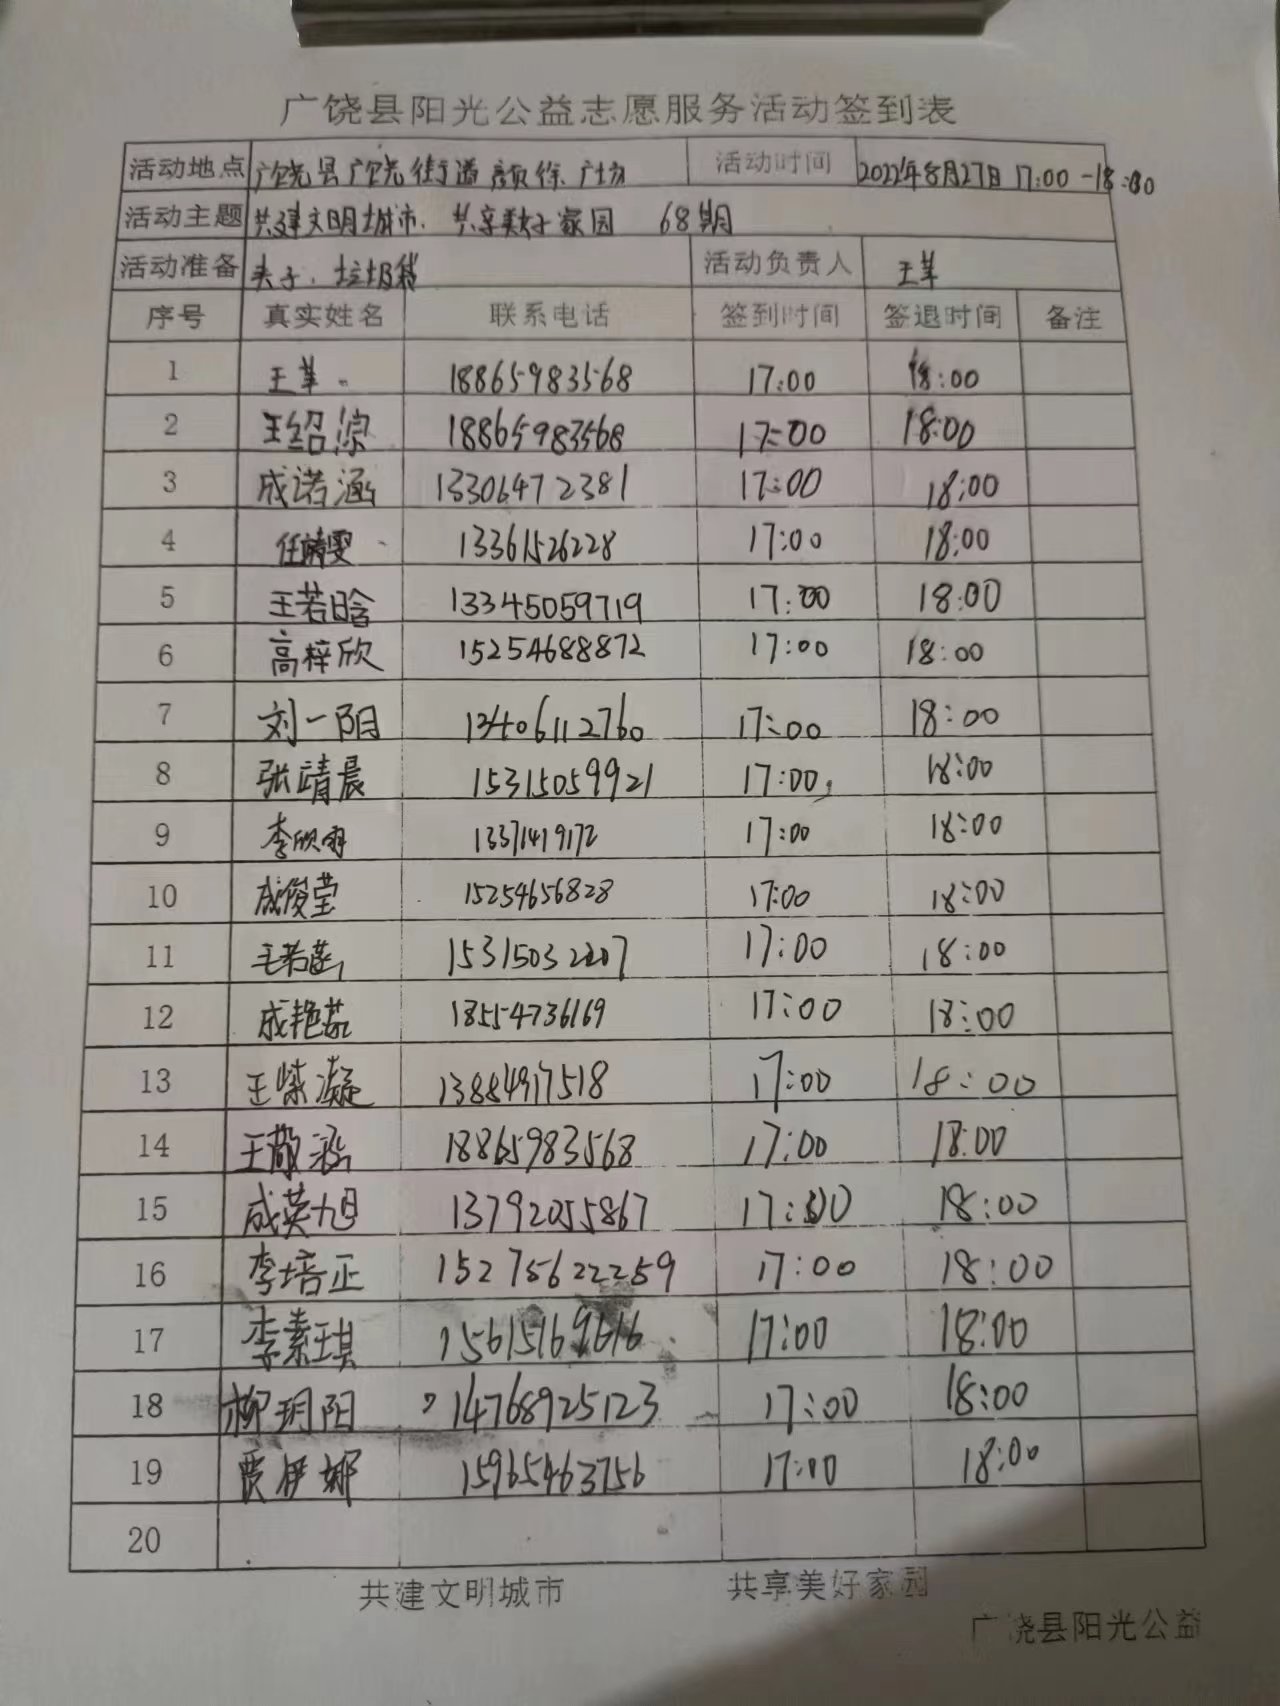 广饶县阳光公益志愿服务活动签到表
活动地点 广饶县广饶街道颜徐广场 活动时间 2022年8月27日 17:00-18:00
活动主题 共建文明城市、共享美好家园 68期
活动准备 夹子、垃圾袋 活动负责人 王苹
序号 真实姓名 联系电话 签到时间 签退时间 备注
1 王苹 18865983568 17:00 18:00
2 王绍淙 18865983568 17:00 18:00
3 成诺涵 13306472381 17:00 18:00
4 任靖雯 13361526228 17:00 18:00
5 王若晗 13345059719 17:00 18:00
6 高梓欣 15254688872 17:00 18:00
7 刘一阳 13406112760 17:00 18:00
8 张靖晨 15315059921 17:00 18:00
9 李欣雨 13371419172 17:00 18:00
10 成俊莹 15254656828 17:00 18:00
11 王若菡 15315032207 17:00 18:00
12 成艳茹 18554736169 17:00 18:00
13 王紫凝 13884917518 17:00 18:00
14 王敬涵 18865983568 17:00 18:00
15 成英旭 13792055867 17:00 18:00
16 李培正 15275622259 17:00 18:00
17 李素琪 15615169616 17:00 18:00
18 柳玥阳 14768925123 17:00 18:00
19 贾伊娜 15965463756 17:00 18:00
20
共建文明城市 共享美好家园
广饶县阳光公益